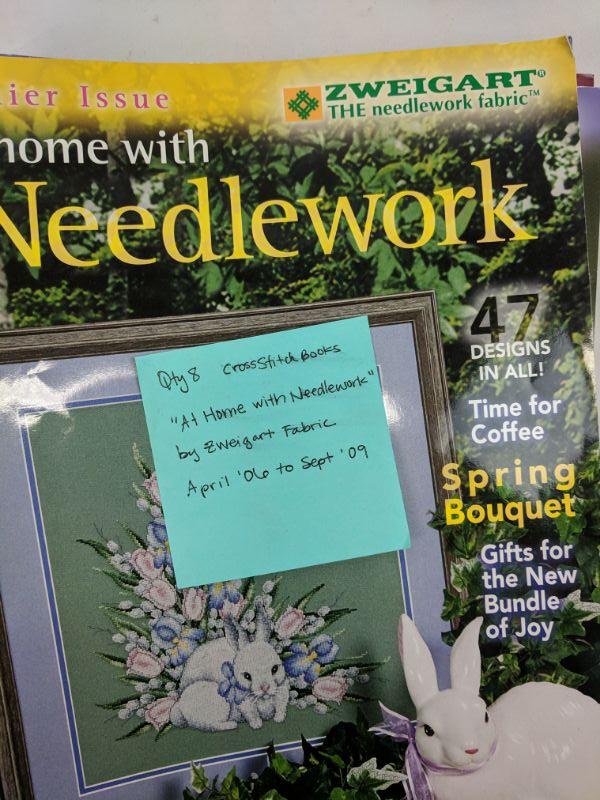 ier Issue
ZWEIGART®
THE needlework fabric™
home with
Needlework
47
DESIGNS
IN ALL!
Time for
Coffee
Spring
Bouquet
Gifts for
the New
Bundle
of Joy
Qty 8 CrossStitch Books
"At Home with Needlework"
by Zweigart Fabric
April '06 to Sept '09